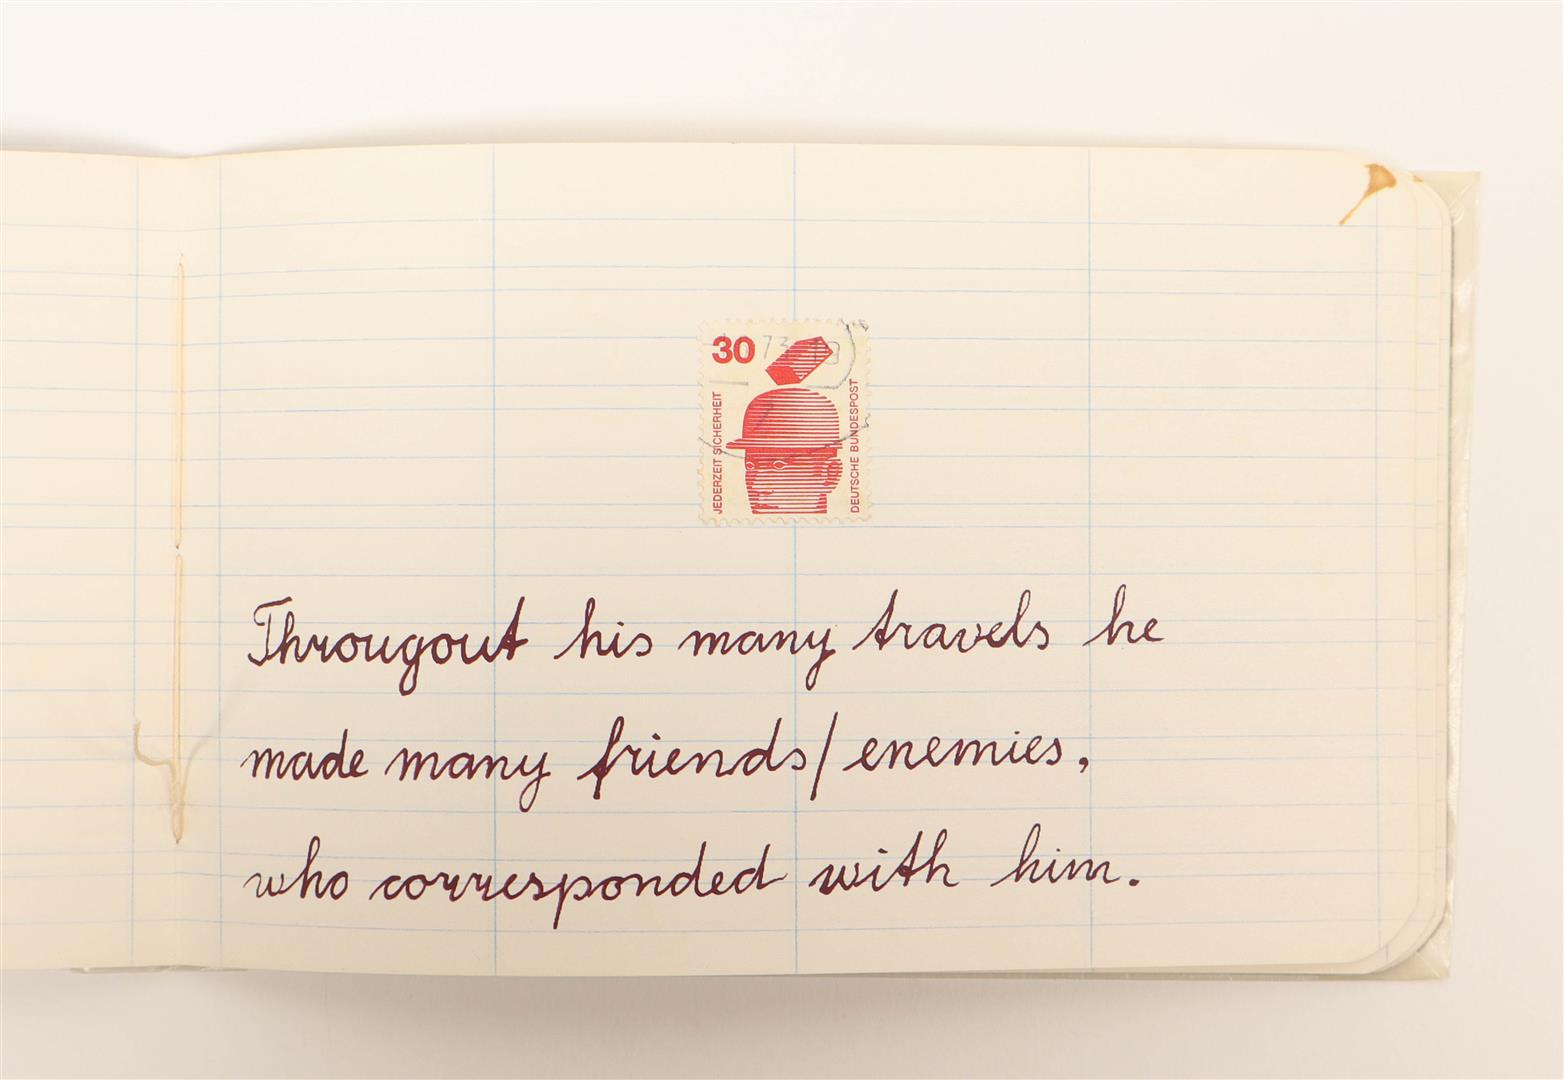 30
73
JEDERZEIT SICHERHEIT
DEUTSCHE BUNDESPOST
Througout his many travels he
made many friends/enemies,
who corresponded with him.